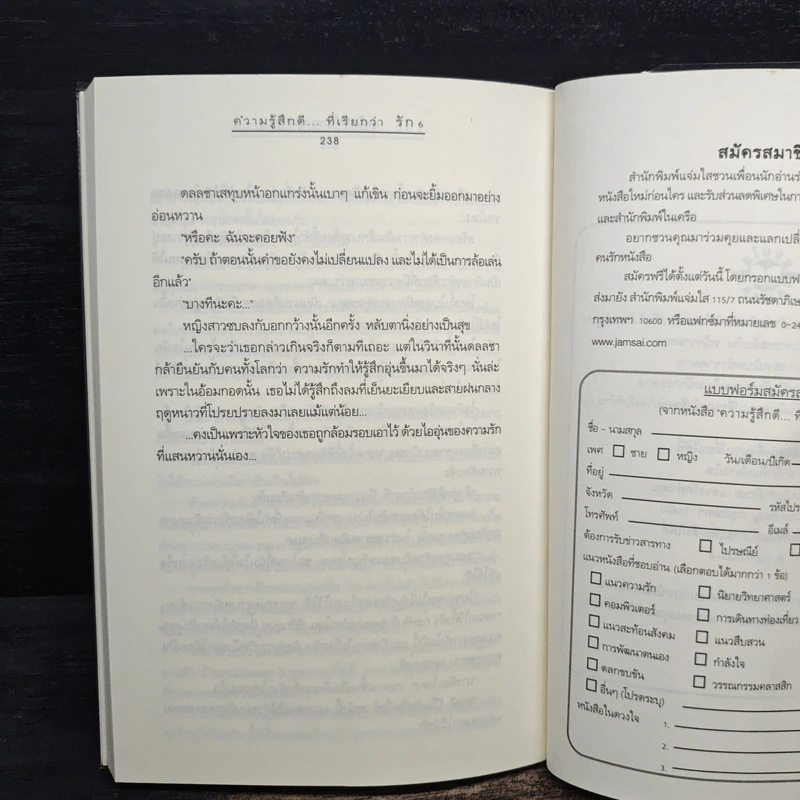 ความรู้สึกดี... ที่เรียกว่า รัก 6
238
ดลลชาเสทุบหน้าอกแกร่งนั้นเบาๆ แก้เขิน ก่อนจะยิ้มออกมาอย่าง
อ่อนหวาน
"หรือคะ ฉันจะคอยฟัง"
"ครับ ถ้าตอนนั้นคำขอยังคงไม่เปลี่ยนแปลง และไม่ได้เป็นการล้อเล่น
อีกแล้ว"
"บางทีนะคะ..."
หญิงสาวซบลงกับอกกว้างนั้นอีกครั้ง หลับตานิ่งอย่างเป็นสุข
...ใครจะว่าเธอกล่าวเกินจริงก็ตามทีเถอะ แต่ในวินาทีนั้นดลลชา
กล้ายืนยันกับคนทั้งโลกว่า ความรักทำให้รู้สึกอุ่นขึ้นมาได้จริงๆ นั่นละ
เพราะในอ้อมกอดนั้น เธอไม่ได้รู้สึกถึงลมที่เย็นยะเยียบและสายฝนกลาง
ฤดูหนาวที่โปรยปรายลงมาเลยแม้แต่น้อย...
...คงเป็นเพราะหัวใจของเธอถูกล้อมรอบเอาไว้ ด้วยไออุ่นของความรัก
ที่แสนหวานนั่นเอง...
สมัครสมาชิ
สำนักพิมพ์แจ่มใสชวนเพื่อนนักอ่านร่
หนังสือใหม่ก่อนใคร และรับส่วนลดพิเศษในกา
และสำนักพิมพ์ในเครือ
อยากชวนคุณมาร่วมคุยและแลกเปลี่
คนรักหนังสือ
สมัครฟรีได้ตั้งแต่วันนี้ โดยกรอกแบบฟอ
ส่งมายัง สำนักพิมพ์แจ่มใส 115/7 ถนนรัชดาภิเษ
กรุงเทพฯ 10600 หรือแฟกซ์มาที่หมายเลข 0-24
www.jamsai.com
แบบฟอร์มสมัครส
(จากหนังสือ "ความรู้สึกดี... ที่
ชื่อ - นามสกุล
เพศ ชาย หญิง วัน/เดือน/ปีเกิด
ที่อยู่
จังหวัด รหัสไปร
โทรศัพท์ อีเมล์
ต้องการรับข่าวสารทาง ไปรษณีย์
แนวหนังสือที่ชอบอ่าน (เลือกตอบได้มากกว่า 1 ข้อ)
แนวความรัก นิยายวิทยาศาสตร์
คอมพิวเตอร์ การเดินทางท่องเที่ยว
แนวสะท้อนสังคม แนวสืบสวน
การพัฒนาตนเอง กำลังใจ
ตลกขบขัน วรรณกรรมคลาสสิก
อื่นๆ (โปรดระบุ)
หนังสือในดวงใจ 1.
2.
3.